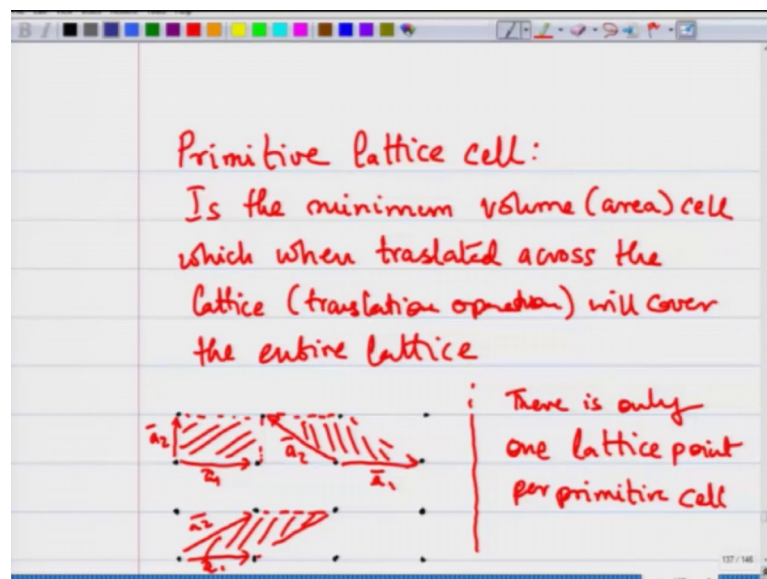 Primitive lattice cell:
Is the minimum volume (area) cell
which when traslated across the
lattice (translation operation) will cover
the entire lattice
There is only
one lattice point
per primitive cell
a̅₂
a̅₁
a̅₂
a̅₁
a̅₂
a̅₁
137 / 146